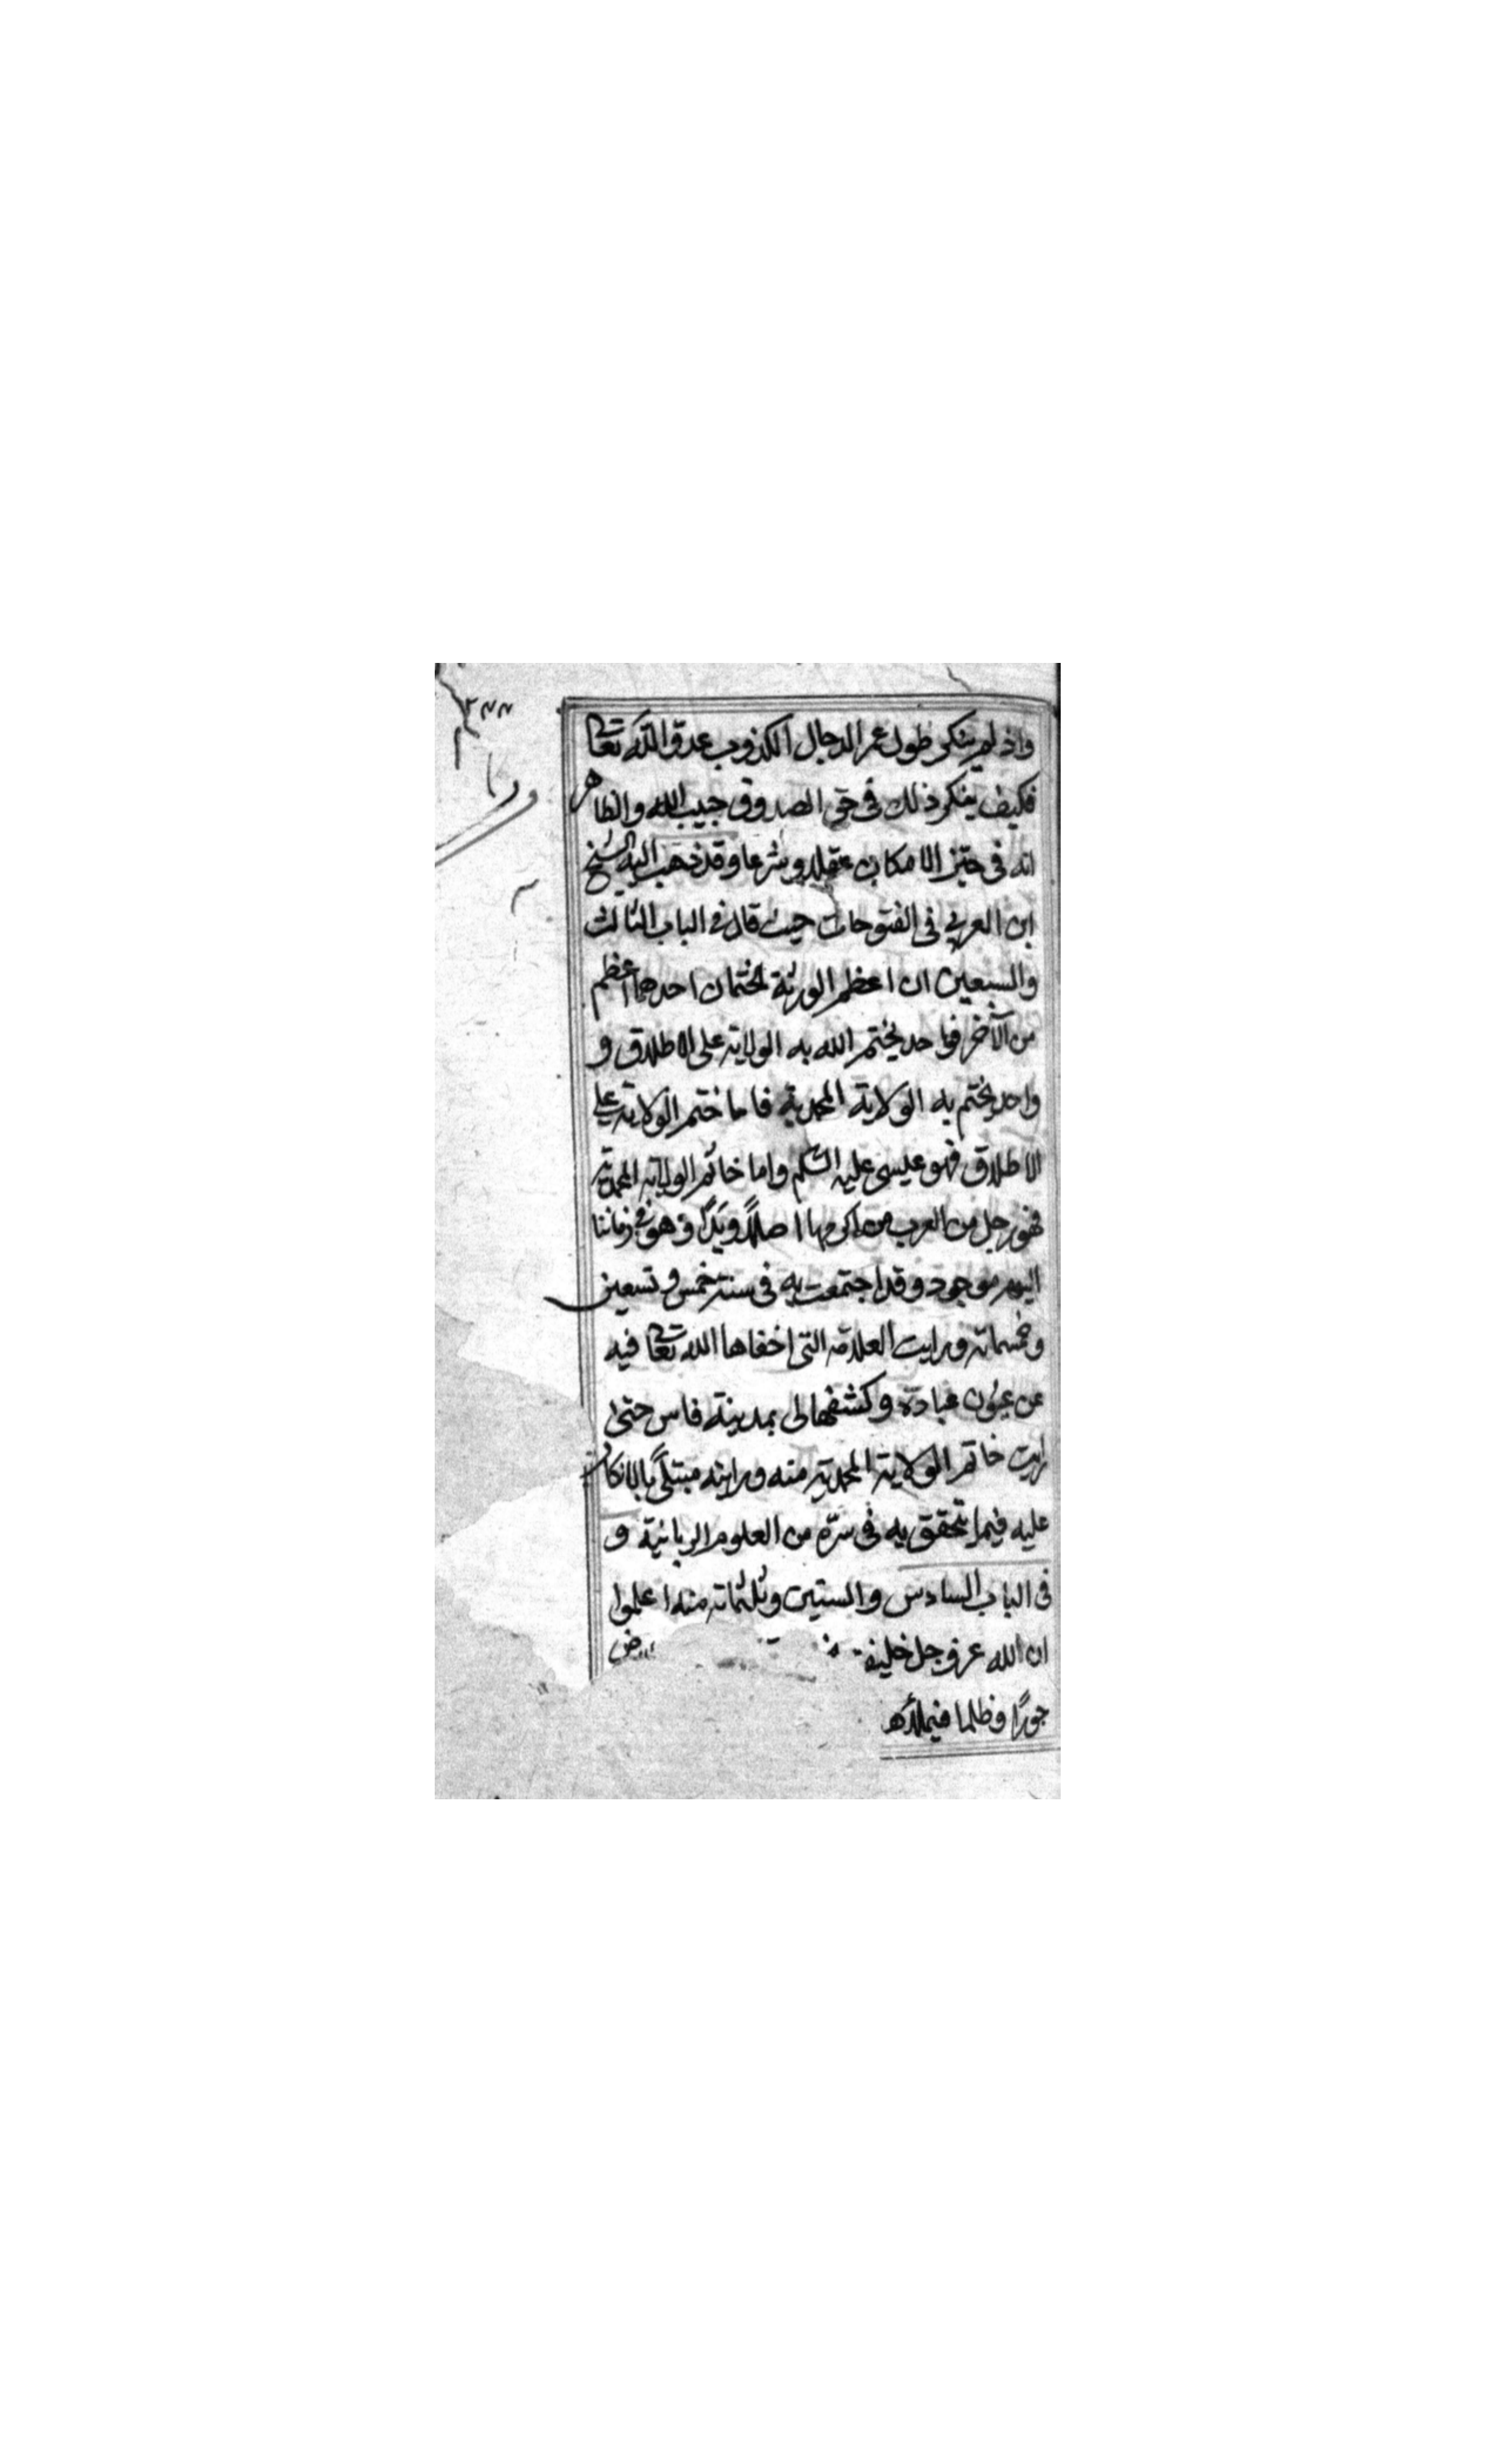 واذ لم ينكر طول عمر الدجال الكذوب عدو الله تعالى
فكيف ينكر ذلك فى حق الصدوق حبيب الله والظاهر
انه فى حيز الامكان عقلا وشرعا وقد ذهب اليه الشيخ
ابن العربي فى الفتوحات حيث قال فى الباب الثالث
والسبعين ان اعظم الورثة الختمان احدهما اعظم
من الآخر فواحد يختم الله به الولاية على الاطلاق و
واحد يختم به الولاية المحمدية فاما ختم الولاية على
الاطلاق فهو عيسى عليه السلم واما خاتم الولاية المحمدية
فهو رجل من العرب من اكرمها اصلاً ويدًا وهو فى زماننا
اليوم موجود وقد اجتمعت به فى سنة خمس وتسعين
وخمسمائة ورايت العلامة التى اخفاها الله تعالى فيه
عن عيون عباده وكشفها لى بمدينة فاس حتى
رايت خاتم الولاية المحمدية منه ورايته مبتلىً بالانكار
عليه فيما تحقق به فى سره من العلوم الربانية و
فى الباب السادس والستين وثلثمائة منه اعلموا
ان الله عز وجل خليفة
جورًا وظلما فيملأها